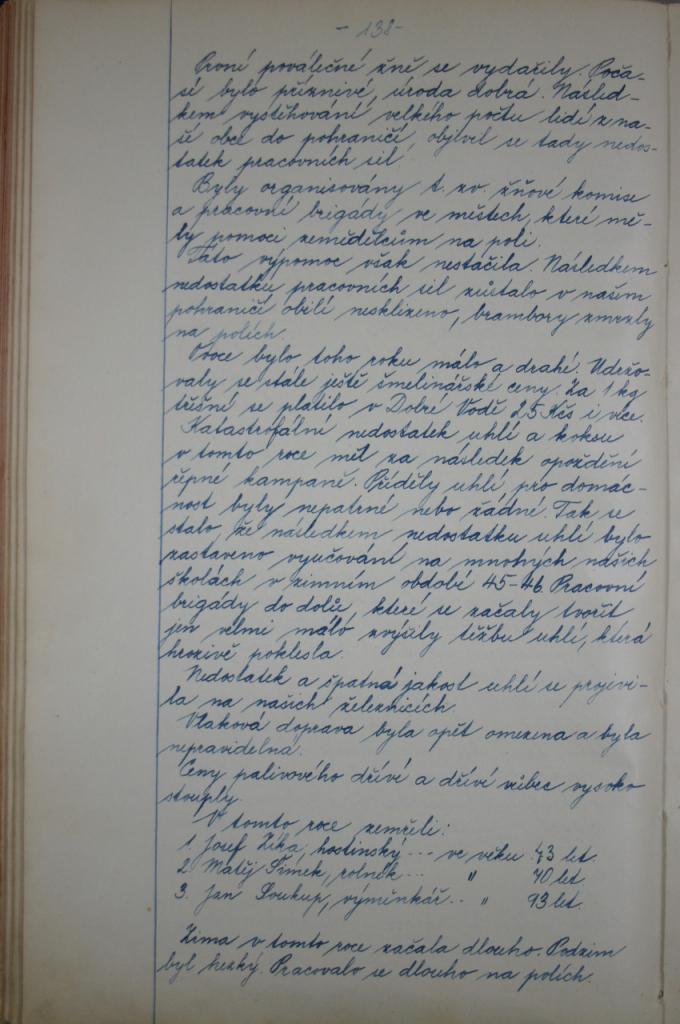 - 138 -
První poválečné žně se vydařily. Poča-
sí bylo příznivé, úroda dobrá. Násled-
kem vystěhování velkého počtu lidí z na-
ší obce do pohraničí, objevil se tady nedos-
tatek pracovních sil.
Byly organisovány t. zv. žňové komise
a pracovní brigády ve městech, které mě-
ly pomoci zemědělcům na poli.
Tato výpomoc však nestačila. Následkem
nedostatku pracovních sil zůstalo v našem
pohraničí obilí nesklizeno, brambory zmrzly
na polích.
Ovoce bylo toho roku málo a drahé. Udržo-
valy se stále ještě šmelinářské ceny. Za 1 kg
třešní se platilo v Dobré Vodě 25 Kčs i více.
Katastrofální nedostatek uhlí a koksu
v tomto roce měl za následek opoždění
řepné kampaně. Příděly uhlí pro domác-
nost byly nepatrné nebo žádné. Tak se
stalo, že následkem nedostatku uhlí bylo
zastaveno vyučování na mnohých našich
školách v zimním období 45-46. Pracovní
brigády do dolů, které se začaly tvořit
jen velmi málo zvýšily těžbu uhlí, která
hrozivě poklesla.
Nedostatek a špatná jakost uhlí se projevi-
la na našich železnicích.
Vlaková doprava byla opět omezena a byla
nepravidelná.
Ceny palivového dříví a dříví vůbec vysoko
stouply.
V tomto roce zemřeli:
1. Josef Zíka, hostinský --- ve věku 43 let.
2. Matěj Šimek, rolník --- " 70 let
3. Jan Soukup, výměnkář -- " 93 let.
Zima v tomto roce začala dlouho. Podzim
byl hezký. Pracovalo se dlouho na polích.